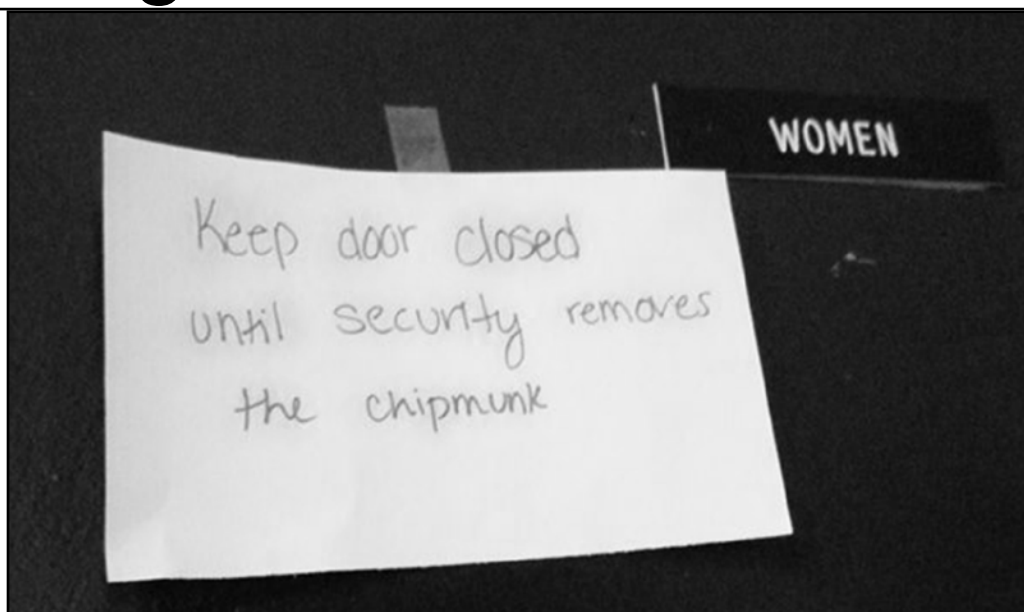 WOMEN
Keep door closed
until security removes
the chipmunk